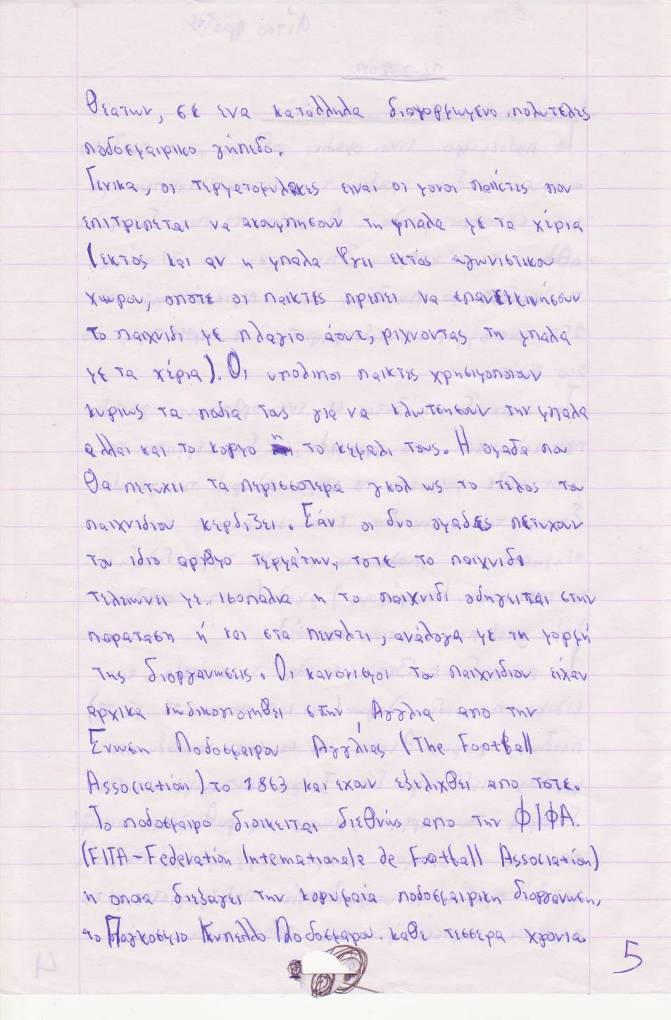 θεατων, σε ενα καταλληλα διαμορφωμενο πολυτελες
ποδοσφαιρικο γήπεδο.
Γενικα, οι τερματοφυλακες ειναι οι μονοι παικτες που
επιτρεπεται να ακουμπησουν τη μπαλα με τα χέρια
(εκτός και αν η μπαλα βγει εκτός αγωνιστικου
χωρου, οποτε οι παικτες πρεπει να επανεκκινήσουν
το παιχνιδι με πλαγιο άουτ, ριχνοντας τη μπαλα
με τα χέρια). Οι υπολιποι παικτες χρησιμοποιουν
κυριως τα ποδια τους για να κλωτσησουν την μπαλα
αλλαι και το κορμο ή το κεφαλι τους. Η ομαδα που
θα πετυχει τα περισσοτερα γκολ ως το τελος του
παιχνιδιου κερδιζει. Εάν οι δυο ομαδες πετυχουν
τον ιδιο αριθμο τερμάτων, τοτε το παιχνιδι
τελειωνει με ισοπαλια η το παιχνιδι οδηγειται στην
παραταση ή και στα πεναλτι, ανάλογα με τη μορφή
της διοργανωσεις. Οι κανονισμοι του παιχνιδιου ειχαν
αρχικα κωδικοποιηθει στην Αγγλια απο την
Ενωση Ποδοσφαιρου Αγγλίας (The Football
Association) το 1863 και εχουν εξελιχθει απο τοτε.
Το ποδοσφαιρο διοικειται διεθνώς απο την ΦΙΦΑ.
(FIFA-Federation Internationale de Football Association)
η οποια διεξαγει την κορυφαία ποδοσφαιρικη διοργανωση,
το Παγκοσμιο Κυπελλο Ποδοσφαιρου. καθε τεσσερα χρονια
5